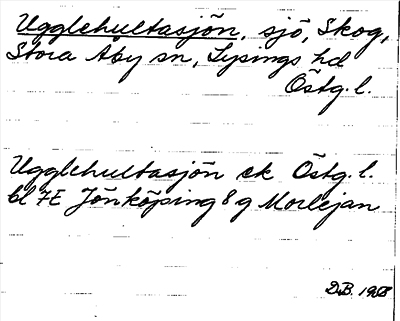 Ugglehultasjön, sjö, Skog,
Stora Åby sn, Lysings hd
Östg. l.
Ugglehultasjön ek Östg. l.
bl 7E Jönköping 8 g Morlejan
D.B. 1968